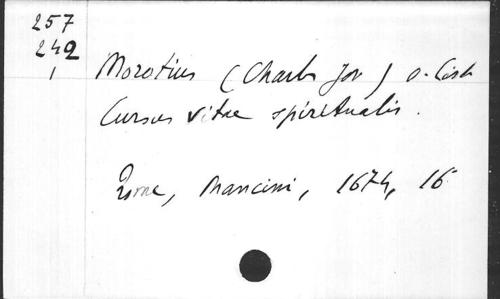 257
242
1
Morotius (Charles Jos) o. Cist
Cursus vitae spiritualis.
Rome, Mancini, 1674, 16